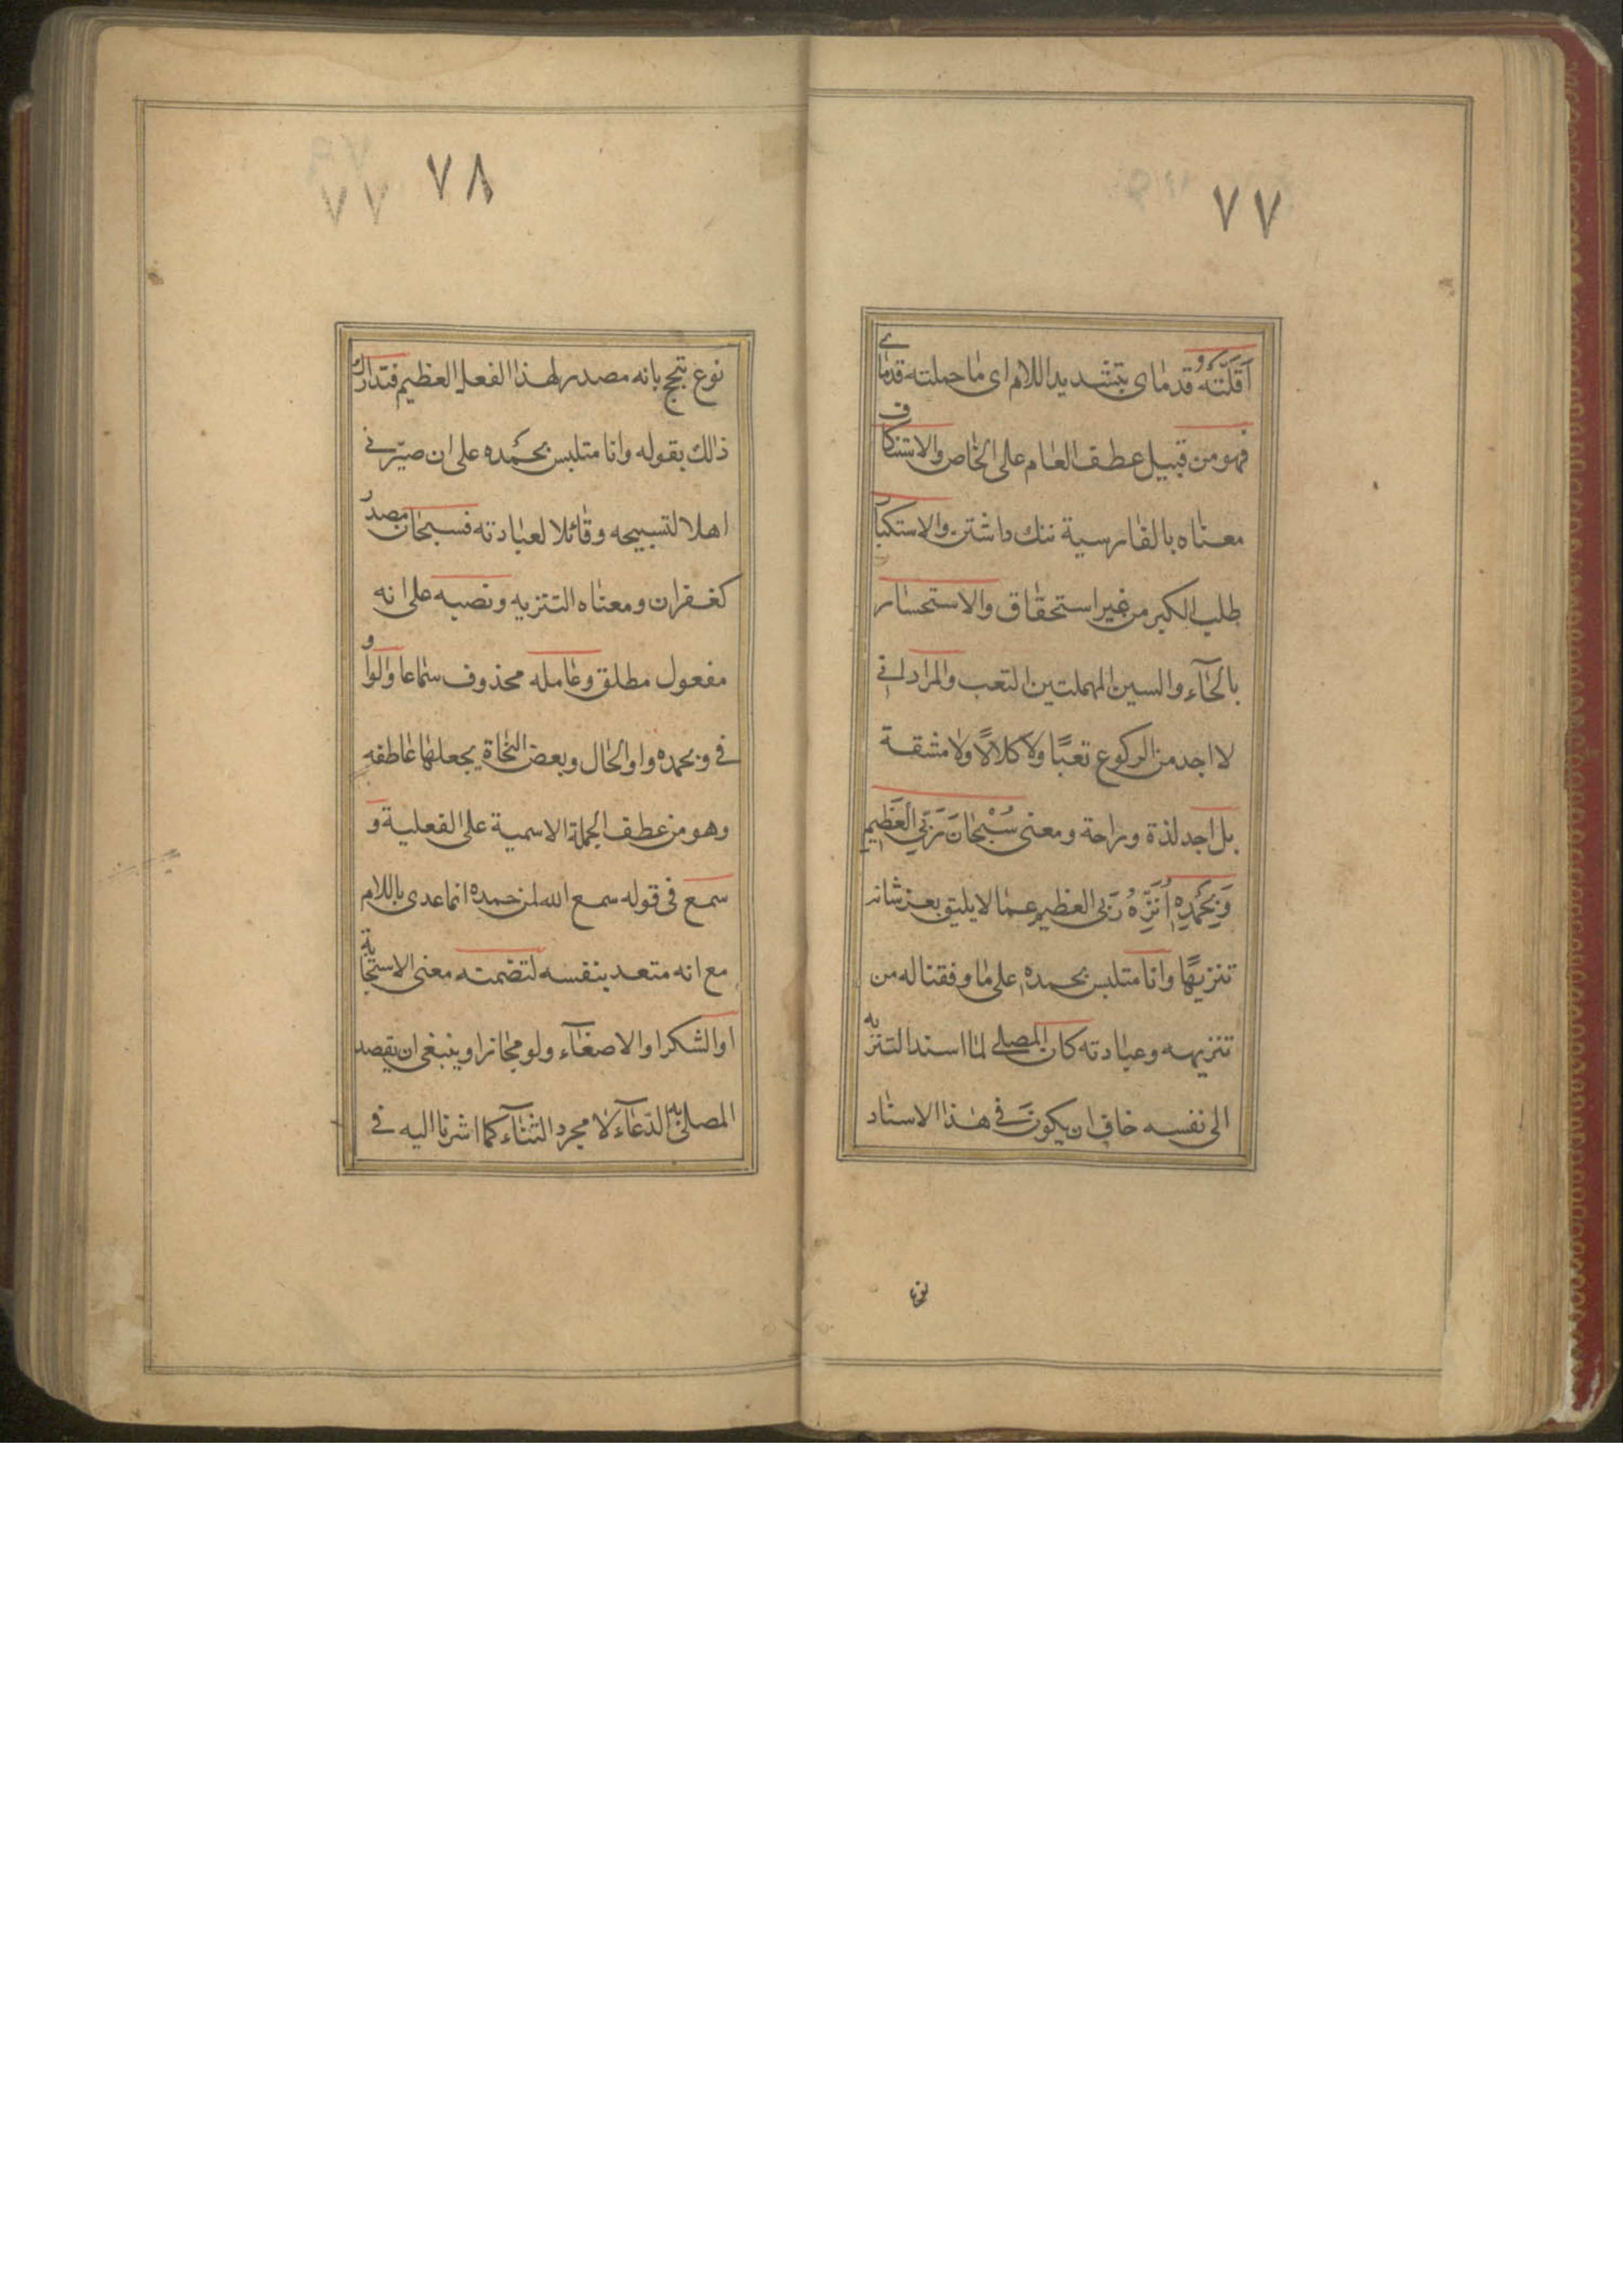 ٧٧
اَقَلَّتْهُ قدمای بتشدید اللام ای ما حملته قدمای
فهو من قبیل عطف العام علی الخاص والاستنکاف
معناه بالفارسیة ننك داشتن والاستکبار
طلب الکبر من غیر استحقاق والاستحسار
بالحآء والسین المهملتین التعب والمراد انی
لا اجد من الرکوع تعبًا ولا کلالًا ولا مشقة
بل اجد لذة وراحة ومعنی سُبْحَانَ رَبِّیَ الْعَظِیمِ
وَبِحَمْدِهِ اُنَزِّهُ رَبِّی العظیم عما لا یلیق بعز شانه
تنزیهًا وانا متلبس بحمده علی ما وفقنا له من
تنزیهه وعبادته کان المصلی لما اسند التنزیه
الی نفسه خاف ان یکون فی هذا الاسناد
نوع
٧٨
نوع تبجح بانه مصدر لهذا الفعل العظیم فتدارك
ذالك بقوله وانا متلبس بحمده علی ان صیّرنی
اهلا لتسبیحه وقائلا لعبادته فسبحان مصدر
کغفران ومعناه التنزیه ونصبه علی انه
مفعول مطلق وعامله محذوف سماعا والواو
فی وبحمده واو الحال وبعض النحاة یجعلها عاطفه
وهو من عطف الجملة الاسمیة علی الفعلیة و
سمع فی قوله سمع الله لمن حمده انما عدی باللام
مع انه متعد بنفسه لتضمنه معنی الاستجابة
او الشکر او الاصغآء ولو مجازا وینبغی ان یقصد
المصلی به الدّعآء لا مجرد الثنآء کما اشرنا الیه فی